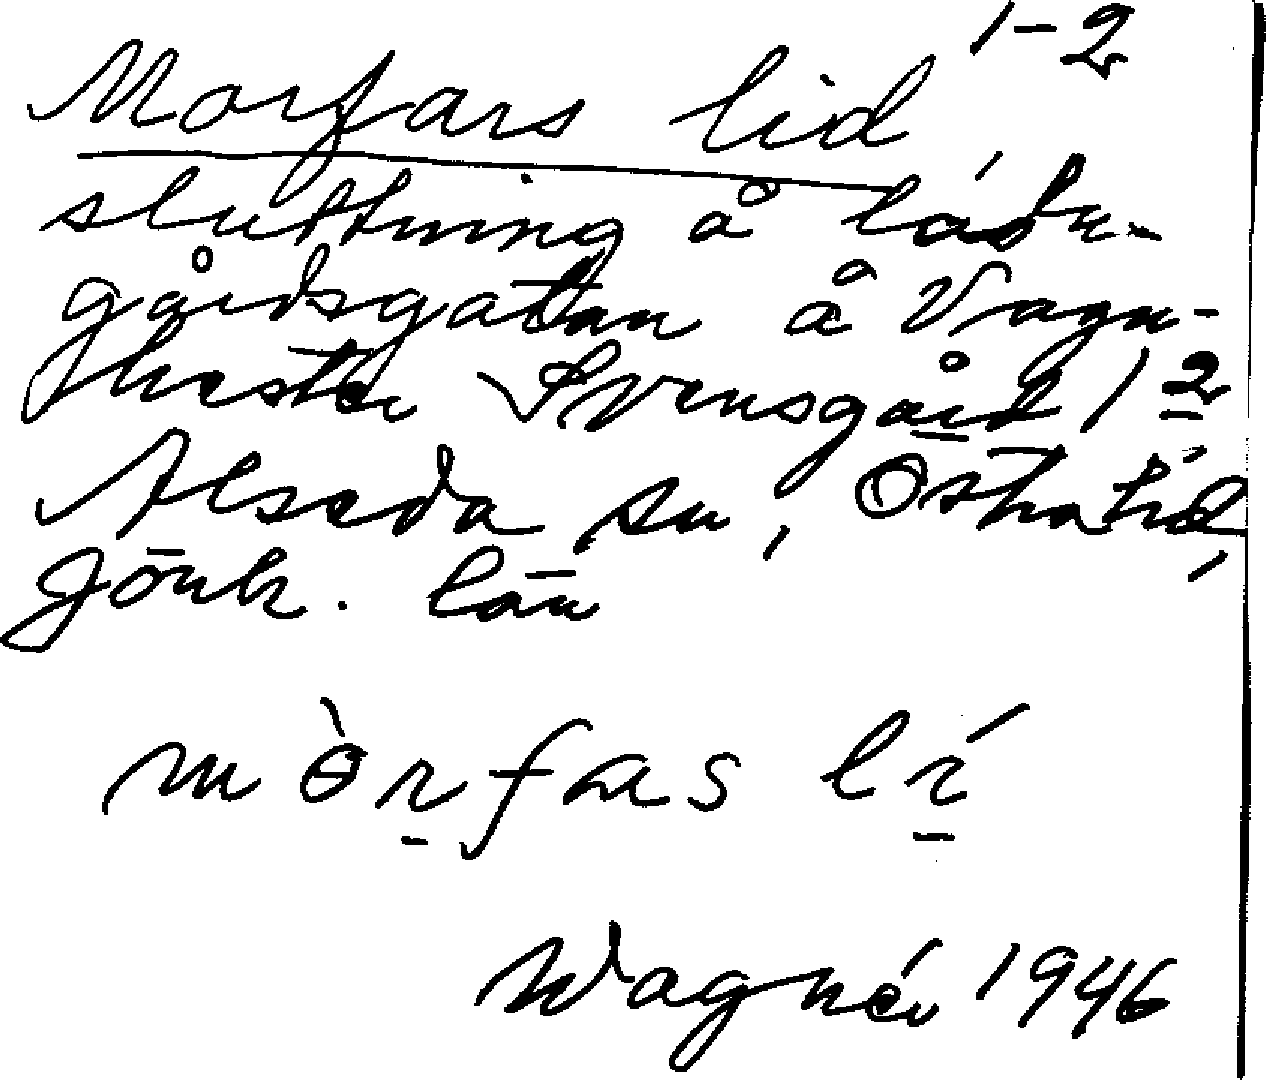 1-2
Morfars lid
sluttning å ladu-
gårdsgatan å Vagn-
hester Svensgård 1 2
Alseda sn, Östra hd,
Jönk. län
mòrfas lí
Wagnér 1946